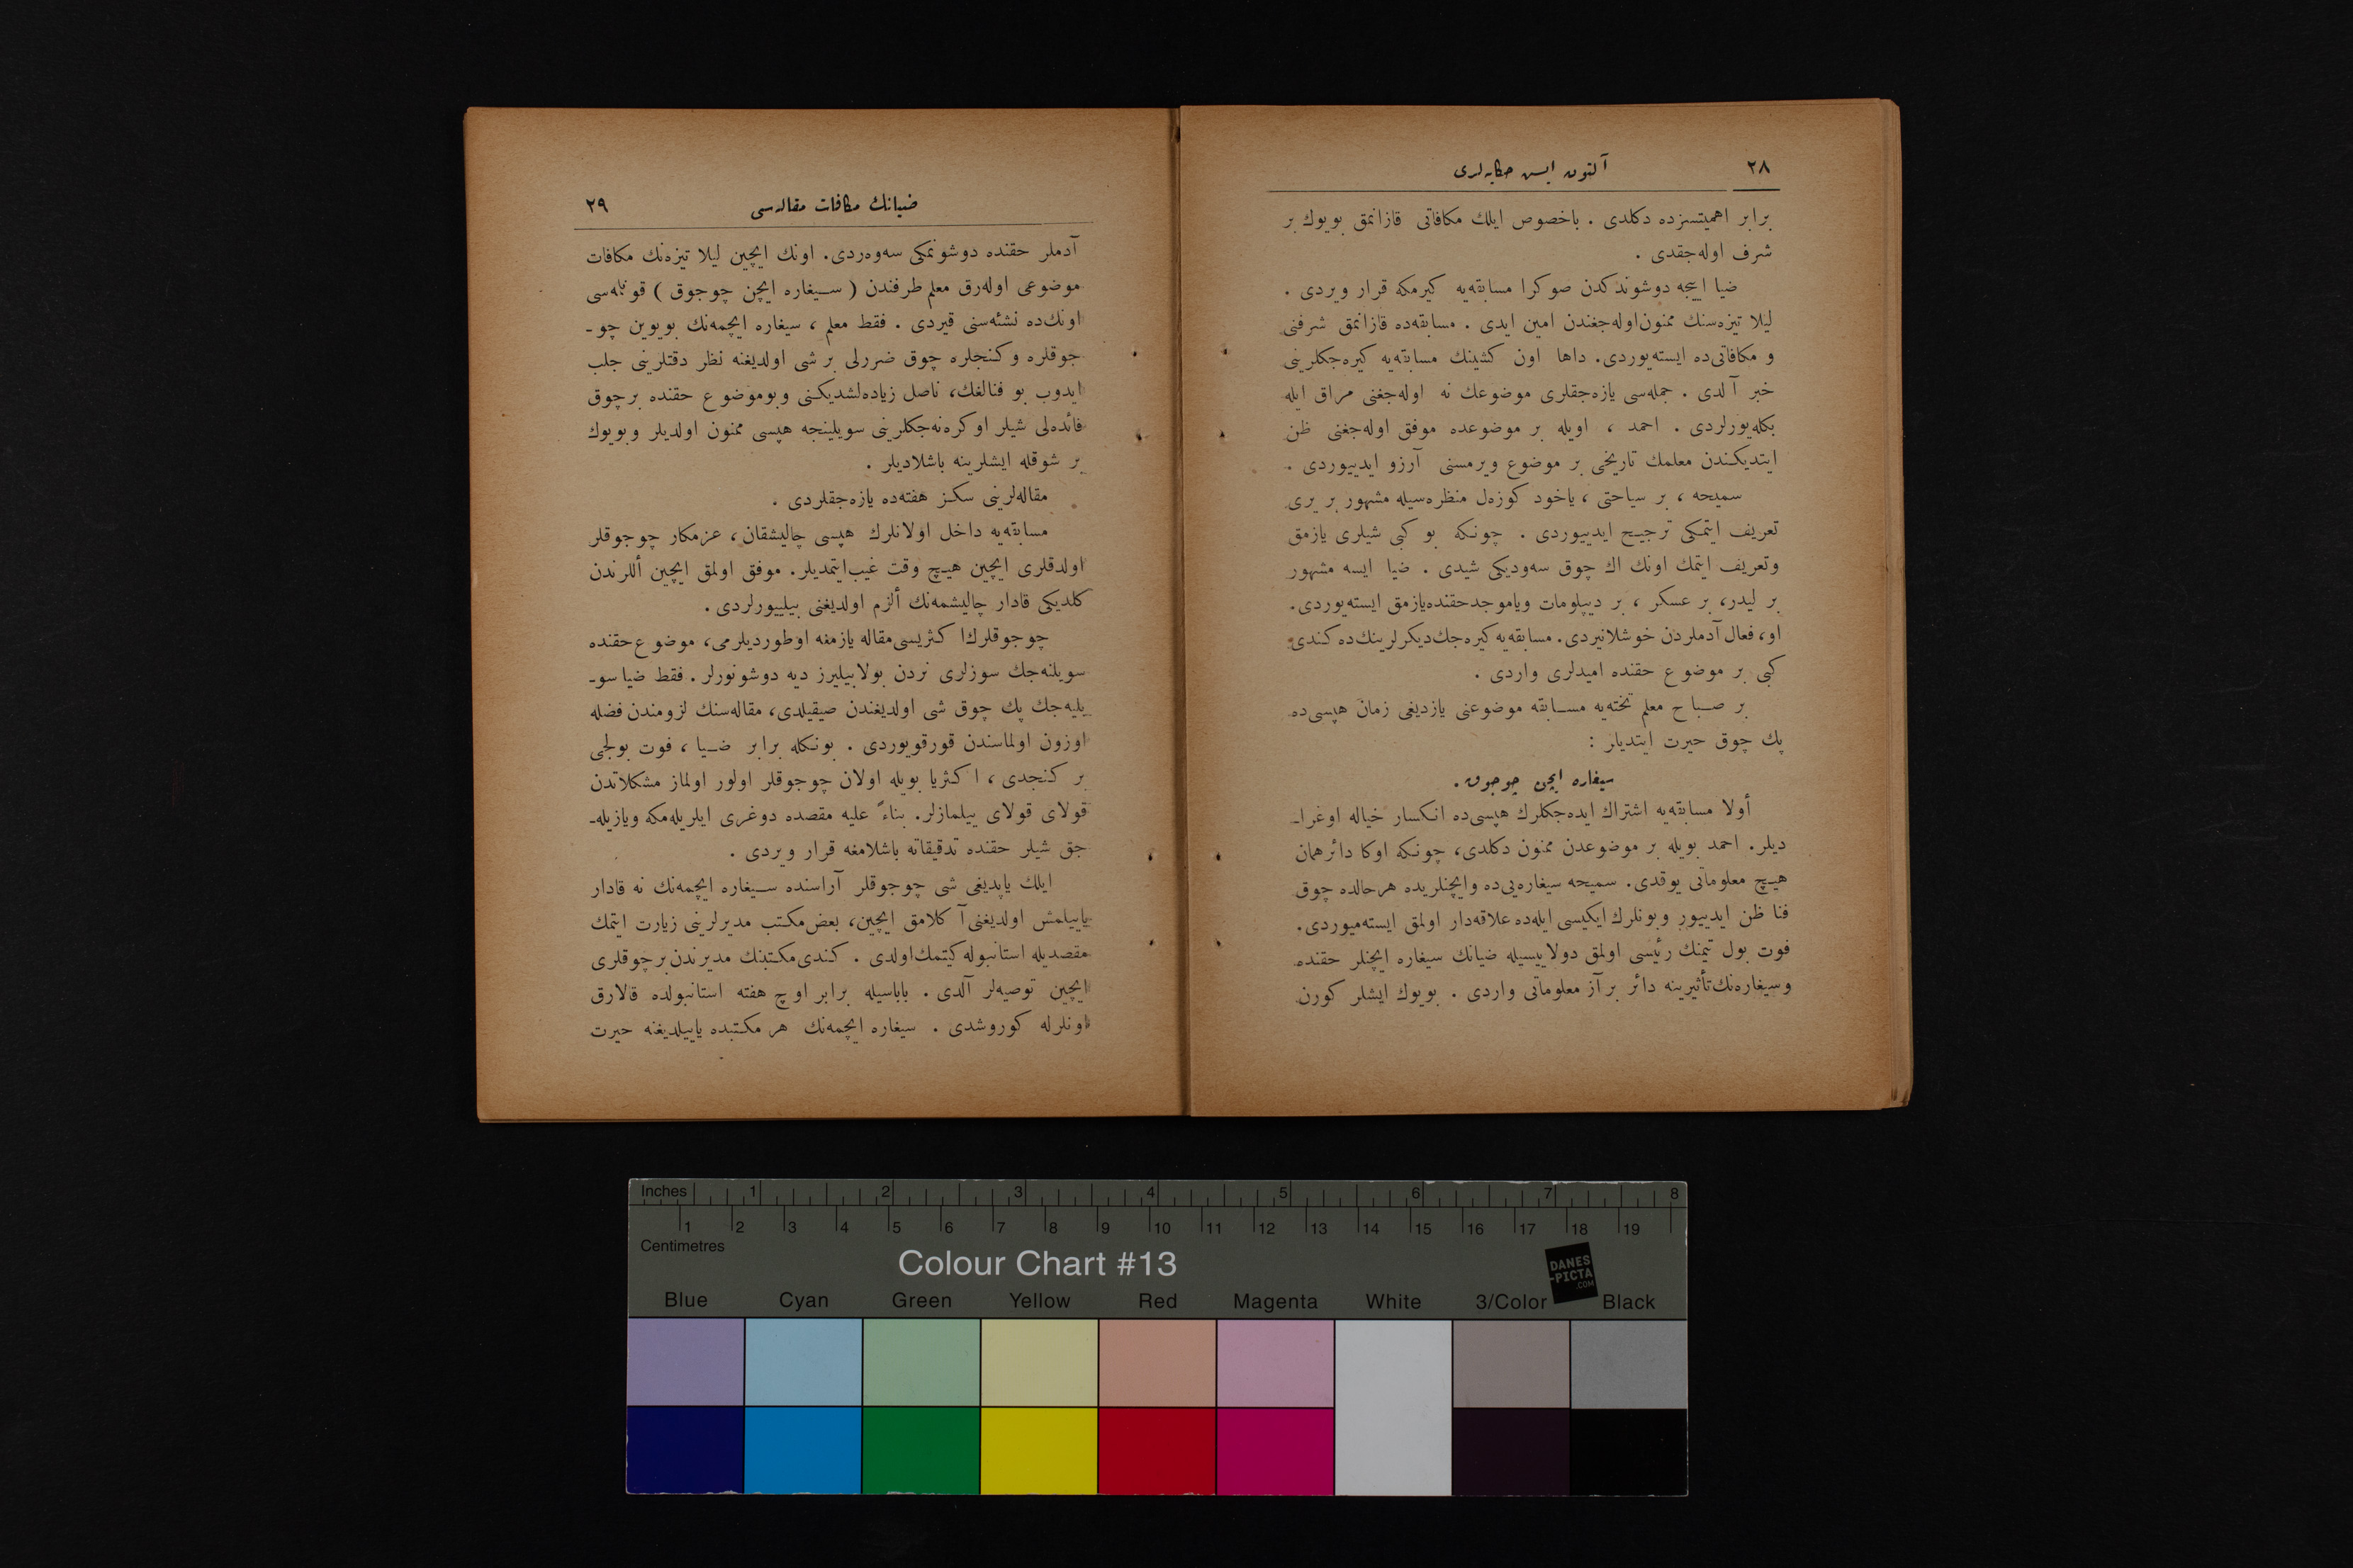 ٢٨
آلتون ایسن حکایه‌لری
برابر اهمیتسزده دکلدی . باخصوص ایلك مکافاتی قازانمق بویوك بر
شرف اوله‌جقدی .
ضیا اییجه دوشوندکدن صوکرا مسابقه‌یه کیرمکه قرار ویردی .
لیلا تیزه‌سنك ممنون اوله‌جغندن امین ایدی . مسابقه‌ده قازانمق شرفنی
و مکافاتی‌ده ایسته‌یوردی. داها اون کشینك مسابقه‌یه کیره‌جکلرینی
خبر آلدی . جمله‌سی یازه‌جقلری موضوعك نه اوله‌جغنی مراق ایله
بکله‌یورلردی . احمد ، اویله بر موضوعده موفق اوله‌جغنی ظن
ایتدیکندن معلمك تاریخی بر موضوع ویرمسنی آرزو ایدییوردی .
سمیحه ، بر سیاحتی ، یاخود کوزه‌ل منظره‌سیله مشهور بر یری
تعریف ایتمکی ترجیح ایدییوردی . چونکه بو کبی شیلری یازمق
وتعریف ایتمك اونك اك چوق سه‌ودیکی شیدی . ضیا ایسه مشهور
بر لیدر، بر عسکر ، بر دیپلومات ویاموجدحقنده‌یازمق ایسته‌یوردی.
او، فعال آدملردن خوشلانیردی. مسابقه‌یه کیره‌جك‌دیکرلرینك‌ده کندی
کبی بر موضوع حقنده امیدلری واردی .
بر صباح معلم تخته‌یه مسابقه موضوعنی یازدیغی زمان هپسی‌ده
پك چوق حیرت ایتدیلر :
سیغاره ایچن چوجوق.
أولا مسابقه‌یه اشتراك ایده‌جکلرك هپسی‌ده انکسار خیاله اوغرا-
دیلر. احمد بویله بر موضوعدن ممنون دکلدی، چونکه اوکا دائرهمان
هیچ معلوماتی یوقدی. سمیحه سیغاره‌یی‌ده وایچنلریده هرحالده چوق
فنا ظن ایدییور وبونلرك ایکیسی ایله‌ده علاقه‌دار اولمق ایسته‌میوردی.
فوت بول تیمنك رئیسی اولمق دولاییسیله ضیانك سیغاره ایچنلر حقنده
وسیغاره‌نك‌تأثیرینه دائر برآز معلوماتی واردی . بویوك ایشلر کورن
ضیانك مکافات مقاله‌سی
٢٩
آدملر حقنده دوشونمکی سه‌وه‌ردی. اونك ایچین لیلا تیزه‌نك مکافات
موضوعی اوله‌رق معلم طرفندن ( سیغاره ایچن چوجوق ) قونمه‌سی
اونك‌ده نشئه‌سنی قیردی . فقط معلم ، سیغاره ایچمه‌نك بویوین چو-
جوقلره وکنجلره چوق ضررلی بر شی اولدیغنه نظر دقتلرینی جلب
ایدوب بو فنالغك، ناصل زیاده‌لشدیکنی وبوموضوع حقنده برچوق
فائده‌لی شیلر اوکره‌نه‌جکلرینی سویلینجه هپسی ممنون اولدیلر وبویوك
بر شوقله ایشلرینه باشلادیلر .
مقاله‌لرینی سکز هفته‌ده یازه‌جقلردی .
مسابقه‌یه داخل اولانلرك هپسی چالیشقان، عزمکار چوجوقلر
اولدقلری ایچین هیچ وقت غیب‌ایتمدیلر. موفق اولمق ایچین أللرندن
کلدیکی قادار چالیشمه‌نك ألزم اولدیغنی بیلییورلردی.
چوجوقلرك‌اکثریسی‌مقاله یازمغه اوطوردیلرمی، موضوع‌حقنده
سویلنه‌جك سوزلری نردن بولابیلیرز دیه دوشونورلر. فقط ضیا سو-
یلیه‌جك پك چوق شی اولدیغندن صیقیلدی، مقاله‌سنك لزومندن فضله
اوزون اولماسندن قورقویوردی . بونکله برابر ضیا ، فوت بولجی
بر کنجدی ، اکثریا بویله اولان چوجوقلر اولور اولماز مشکلاتدن
قولای قولای ییلمازلر. بناءً علیه مقصده دوغری ایلریله‌مکه ویازیله-
جق شیلر حقنده تدقیقاته باشلامغه قرار ویردی .
ایلك یاپدیغی شی چوجوقلر آراسنده سیغاره ایچمه‌نك نه قادار
یاییلمش اولدیغنی‌آکلامق ایچین، بعض‌مکتب مدیرلرینی زیارت ایتمك
مقصدیله استانبوله کیتمك‌اولدی . کندی‌مکتبنك مدیرندن‌برچوقلری
ایچین توصیه‌لر آلدی . باباسیله برابر اوچ هفته استانبولده قالارق
اونلرله کوروشدی . سیغاره ایچمه‌نك هر مکتبده یاپیلدیغنه حیرت
Inches 1 2 3 4 5 6 7 8
1 2 3 4 5 6 7 8 9 10 11 12 13 14 15 16 17 18 19
Centimetres
Colour Chart #13
DANES
-PICTA
.COM
Blue Cyan Green Yellow Red Magenta White 3/Color Black